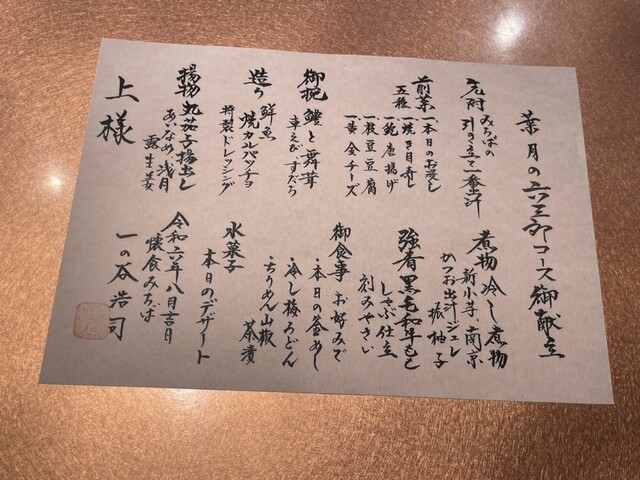 葉月の六三郎コース御献立
先附 みちばの
引き立て一番出汁
前菜 一、本日のお浸し
五種 一、焼き目寿し
一、鮑唐揚げ
一、枝豆豆腐
一、黄金チーズ
御椀 鱧と舞茸
車えび、すだち
造り 鮮魚
焼カルパッチョ
特製ドレッシング
揚物 丸茄子揚出し
あいなめ、浅月
露生姜
煮物 冷し煮物
新小芋、南京
かつお出汁ジュレ
振柚子
強肴 黒毛和牛もも
しゃぶ仕立
刻みやさい
御食事 お好みで
・本日の釜めし
・冷し梅うどん
・ちりめん山椒
茶漬
水菓子
本日のデザート
令和六年八月吉日
懐食みちば
一の谷浩司
上様